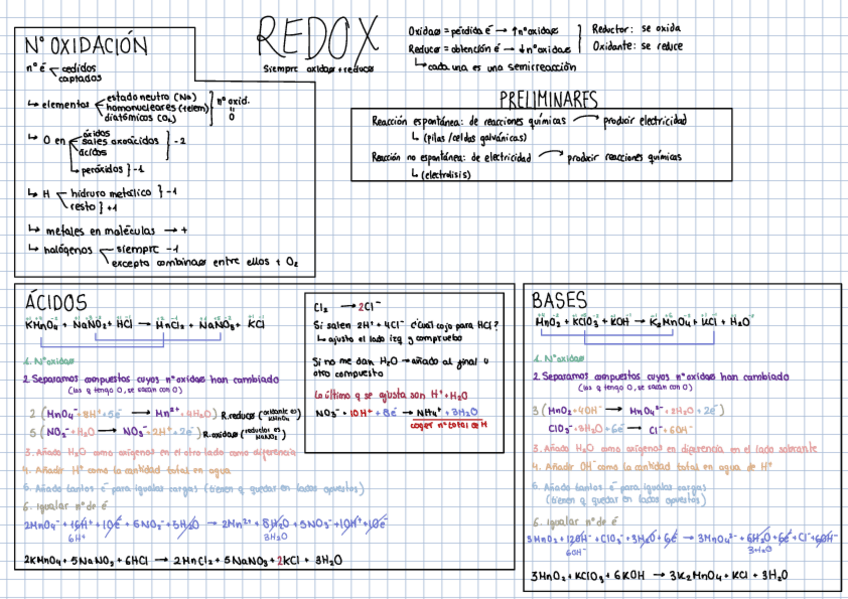 REDOX
Siempre oxidas + reduces
Oxidas = pérdida é → ↑nºoxidas
Reduces = obtención é → ↓nºoxidas
↳ cada una es una semirreacción
Reductor: se oxida
Oxidante: se reduce
Nº OXIDACIÓN
nº é
cedidos
captados
↳ elementos
estado neutro (Na)
homonucleares (telem)
diatómicos (O₂)
nº oxid.
0
↳ O en
óxidos
sales oxoácidos
ácidos
} -2
↳ peróxidos } -1
↳ H
hidruro metálico } -1
resto } +1
↳ metales en moléculas → +
↳ halógenos
siempre -1
excepto combinaos entre ellos + O₂
PRELIMINARES
Reacción espontánea: de reacciones químicas → producir electricidad
↳ (pilas/celdas galvánicas)
Reacción no espontánea: de electricidad → producir reacciones químicas
↳ (electrolisis)
ÁCIDOS
KMnO₄ + NaNO₂ + HCl → MnCl₂ + NaNO₃ + KCl
1. Nºoxidas
2. Separamos compuestos cuyos nºoxidas han cambiado
(los q tengo O, se sacan con O)
2 (MnO₄⁻ + 8H⁺ + 5é → Mn²⁺ + 4H₂O) R.reduce (oxidante es KMnO₄)
5 (NO₂⁻ + H₂O → NO₃⁻ + 2H⁺ + 2é) R.oxidas (reductor es NaNO₂)
3. Añadir H₂O como oxígenos en el otro lado como diferencia
4. Añadir H⁺ como la cantidad total en agua
5. Añado tantos é para igualar cargas (tienen q quedar en lados opuestos)
6. Igualar nº de é
2MnO₄⁻ + 16H⁺ + 10é + 5NO₂⁻ + 5H₂O → 2Mn²⁺ + 8H₂O + 5NO₃⁻ + 10H⁺ + 10é
6H⁺
3H₂O
2KMnO₄ + 5NaNO₂ + 6HCl → 2MnCl₂ + 5NaNO₃ + 2KCl + 3H₂O
Cl₂ → 2Cl⁻
Si salen 2H⁺ + 4Cl⁻ ¿cuál cojo para HCl?
↳ ajusto el lado izq y compruebo
Si no me dan H₂O → añado al final u
otro compuesto
Lo último q se ajusta son H⁺ + H₂O
NO₃⁻ + 10H⁺ + 8é → NH₄⁺ + 3H₂O
coger nº total de H
BASES
MnO₂ + KClO₃ + KOH → K₂MnO₄ + KCl + H₂O
1. Nºoxidas
2. Separamos compuestos cuyos nºoxidas han cambiado
(los q tengo O, se sacan con O)
3 (MnO₂ + 4OH⁻ → MnO₄²⁻ + 2H₂O + 2é)
ClO₃⁻ + 3H₂O + 6é → Cl⁻ + 6OH⁻
3. Añado H₂O como oxígenos en diferencia en el lado sobrante
4. Añadir OH⁻ como la cantidad total en agua de H⁺
5. Añado tantos é para igualar cargas
(tienen q quedar en lados opuestos)
6. Igualar nº de é
3MnO₂ + 12OH⁻ + ClO₃⁻ + 3H₂O + 6é → 3MnO₄²⁻ + 6H₂O + 6é + Cl⁻ + 6OH⁻
6OH⁻
3H₂O
3MnO₂ + KClO₃ + 6KOH → 3K₂MnO₄ + KCl + 3H₂O